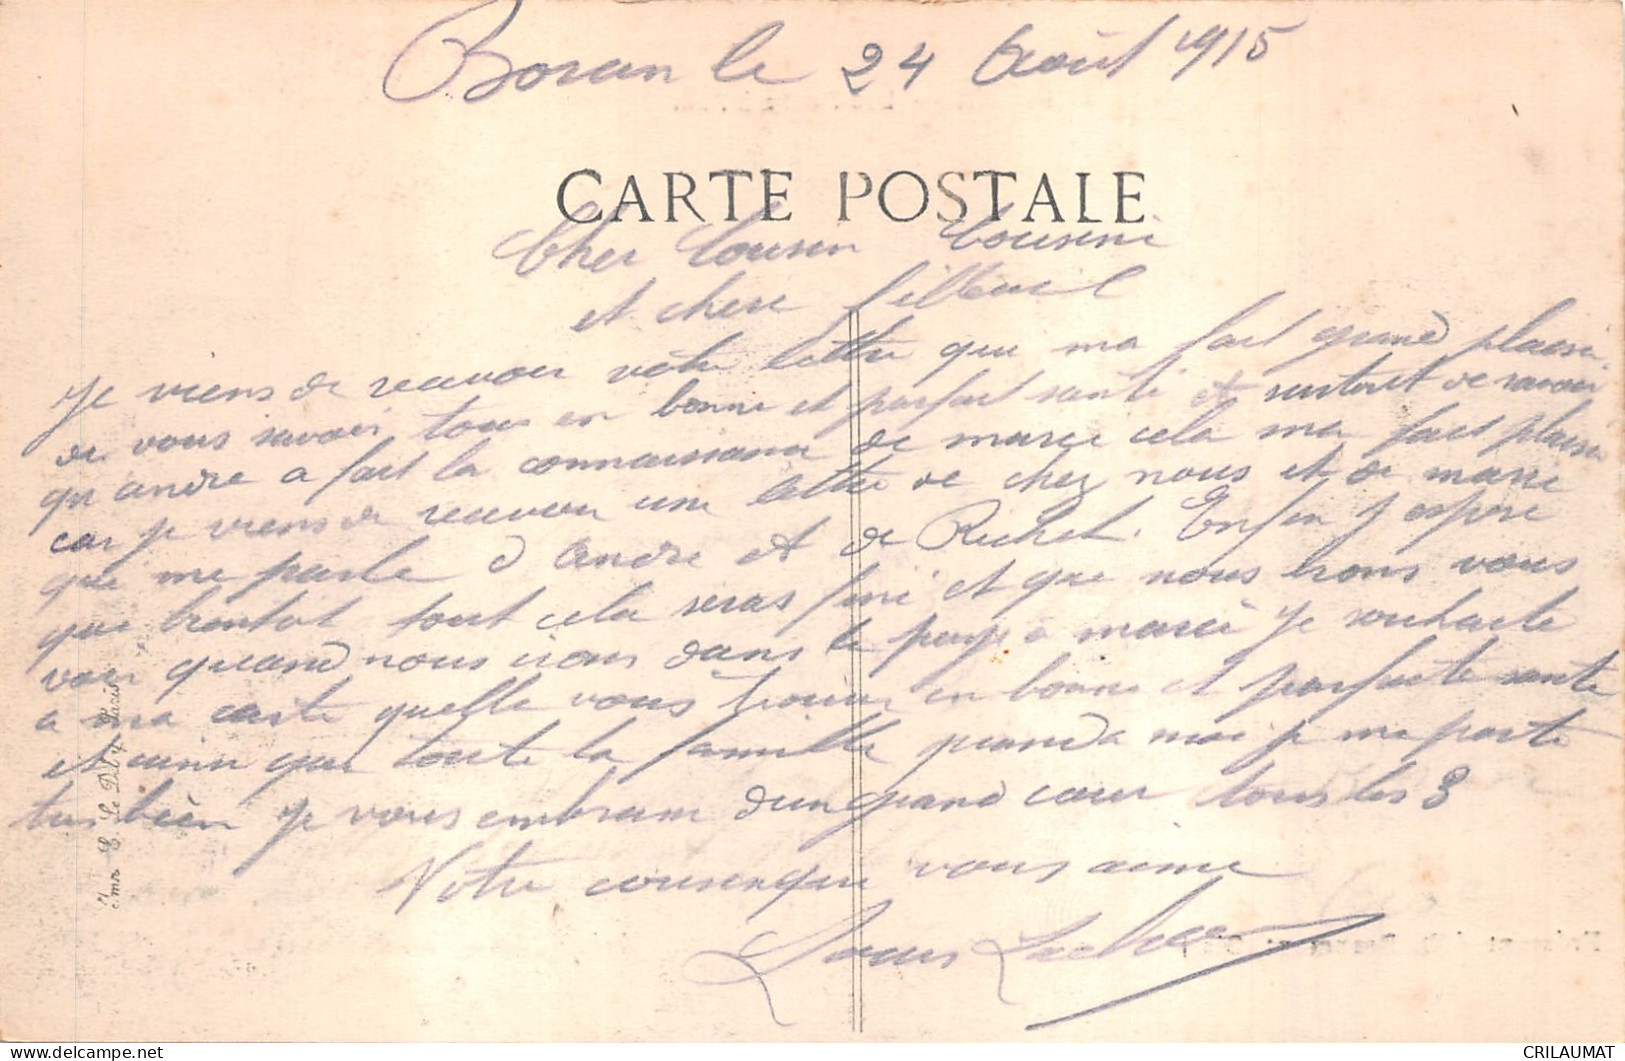 Boran le 24 Août 1915
CARTE POSTALE
Cher Cousin Cousine
et chere
Je viens de recevoir votre lettre que ma fait grand plaisir
de vous savoir tous en bonne et parfait santé et surtout de savoir
qu andre a fait la connaissance de marie cela ma fait plaisir
car je viens de recevoir une lettre de chez nous et de marie
qui me parle d andre et de Richet. Enfin j espere
que bientot tout cela seras fini et que nous irons vous
voir quand nous irons dans le pays a marie Je souhaite
a ma carte quelle vous trouve en bonne et parfaite sante
et ainsi que toute la famille quand a moi je me porte
tres bien je vous embrasse dun grand cœur tous les 3
Votre cousin que vous aime
Louis
Imp. E. Le Deley, Paris
CRILAUMAT